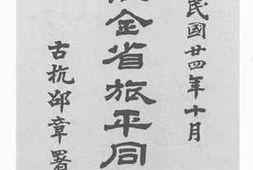 民國廿四年十月
金省旅平同
古杭邵章署